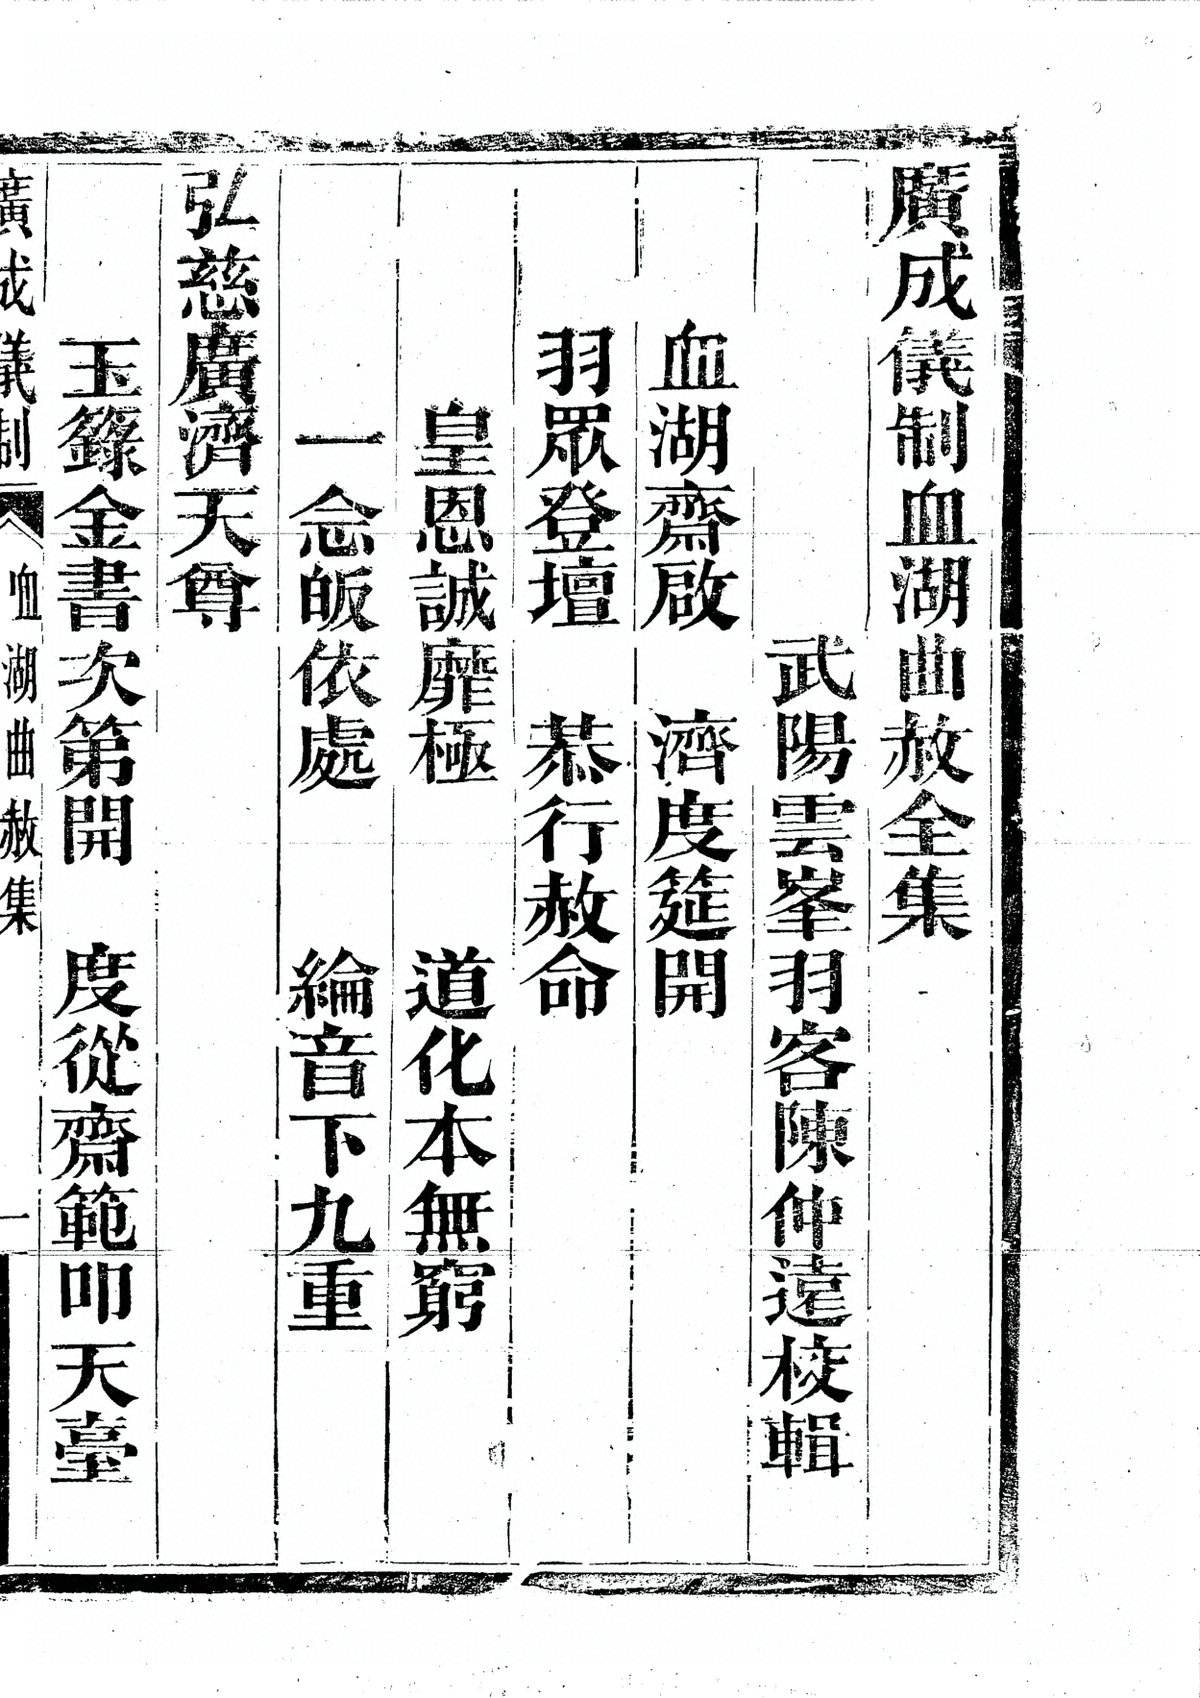 廣成儀制血湖曲赦全集
武陽雲峯羽客陳仲遠校輯
血湖齋啟　濟度筵開
羽眾登壇　恭行赦命
皇恩誠靡極　道化本無窮
一念皈依處　綸音下九重
弘慈廣濟天尊
玉籙金書次第開　度從齋範叩天臺
廣成儀制　血湖曲赦集　一